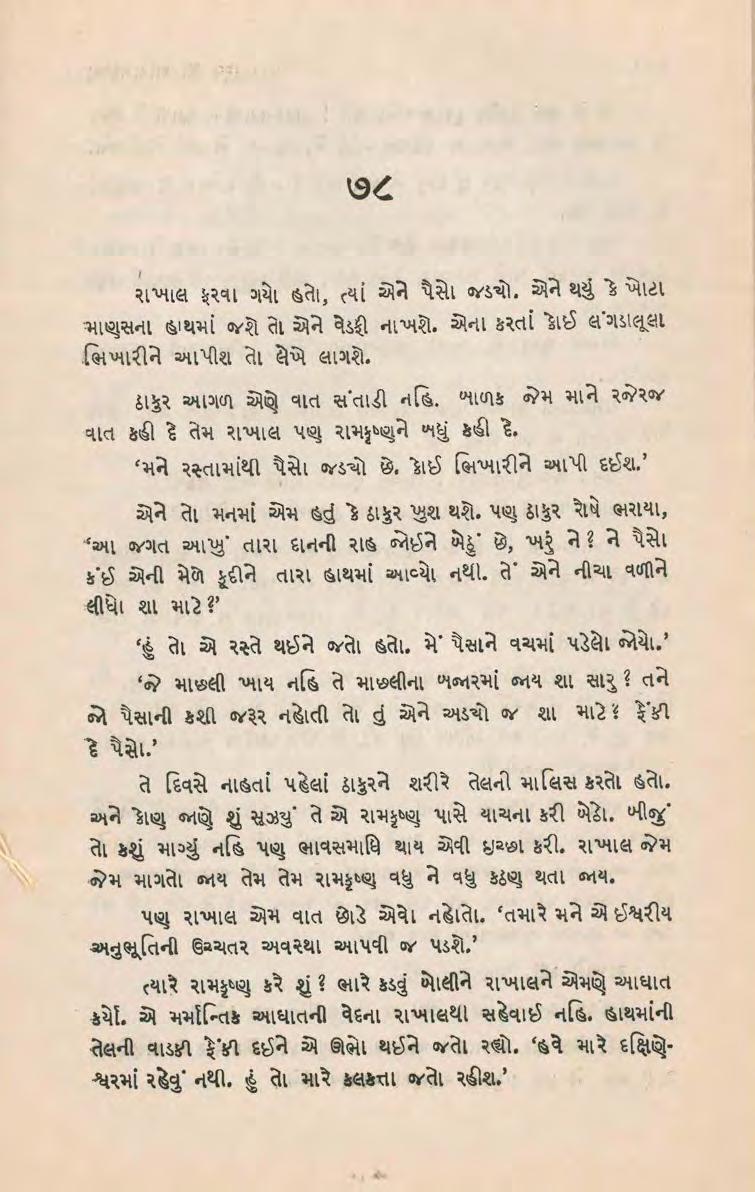 ૭૮
રાખાલ ફરવા ગયો હતો, ત્યાં એને પૈસો જડ્યો. એને થયું કે ખોટા
માણસના હાથમાં જશે તો એને વેડફી નાખશે. એના કરતાં કોઈ લંગડાલૂલા
ભિખારીને આપીશ તો લેખે લાગશે.
ઠાકુર આગળ એણે વાત સંતાડી નહિ. બાળક જેમ માને રજેરજ
વાત કહી દે તેમ રાખાલ પણ રામકૃષ્ણને બધું કહી દે.
‘મને રસ્તામાંથી પૈસો જડ્યો છે. કોઈ ભિખારીને આપી દઈશ.’
એને તો મનમાં એમ હતું કે ઠાકુર ખુશ થશે. પણ ઠાકુર રોષે ભરાયા,
‘આ જગત આખું તારા દાનની રાહ જોઈને બેઠું છે, ખરું ને? ને પૈસો
કંઈ એની મેળે કૂદીને તારા હાથમાં આવ્યો નથી. તેં એને નીચા વળીને
લીધો શા માટે?’
‘હું તો એ રસ્તે થઈને જતો હતો. મેં પૈસાને વચમાં પડેલો જોયો.’
‘જે માછલી ખાય નહિ તે માછલીના બજારમાં જાય શા સારુ? તને
જો પૈસાની કશી જરૂર નહોતી તો તું એને અડચો જ શા માટે? ફેંકી
દે પૈસો.’
તે દિવસે નાહતાં પહેલાં ઠાકુરને શરીરે તેલની માલિસ કરતો હતો.
અને કોણ જાણે શું સૂઝયું તે એ રામકૃષ્ણ પાસે યાચના કરી બેઠો. બીજું
તો કશું માગ્યું નહિ પણ ભાવસમાધિ થાય એવી ઇચ્છા કરી. રાખાલ જેમ
જેમ માગતો જાય તેમ તેમ રામકૃષ્ણ વધુ ને વધુ કઠણ થતા જાય.
પણ રાખાલ એમ વાત છોડે એવો નહોતો. ‘તમારે મને એ ઈશ્વરીય
અનુભૂતિની ઉચ્ચતર અવસ્થા આપવી જ પડશે.’
ત્યારે રામકૃષ્ણ કરે શું? ભારે કડવું બોલીને રાખાલને એમણે આઘાત
કર્યો. એ મર્માન્તિક આઘાતની વેદના રાખાલથી સહેવાઈ નહિ. હાથમાંની
તેલની વાડકી ફેંકી દઈને એ ઊભો થઈને જતો રહ્યો. ‘હવે મારે દક્ષિણે-
શ્વરમાં રહેવું નથી. હું તો મારે કલકત્તા જતો રહીશ.’